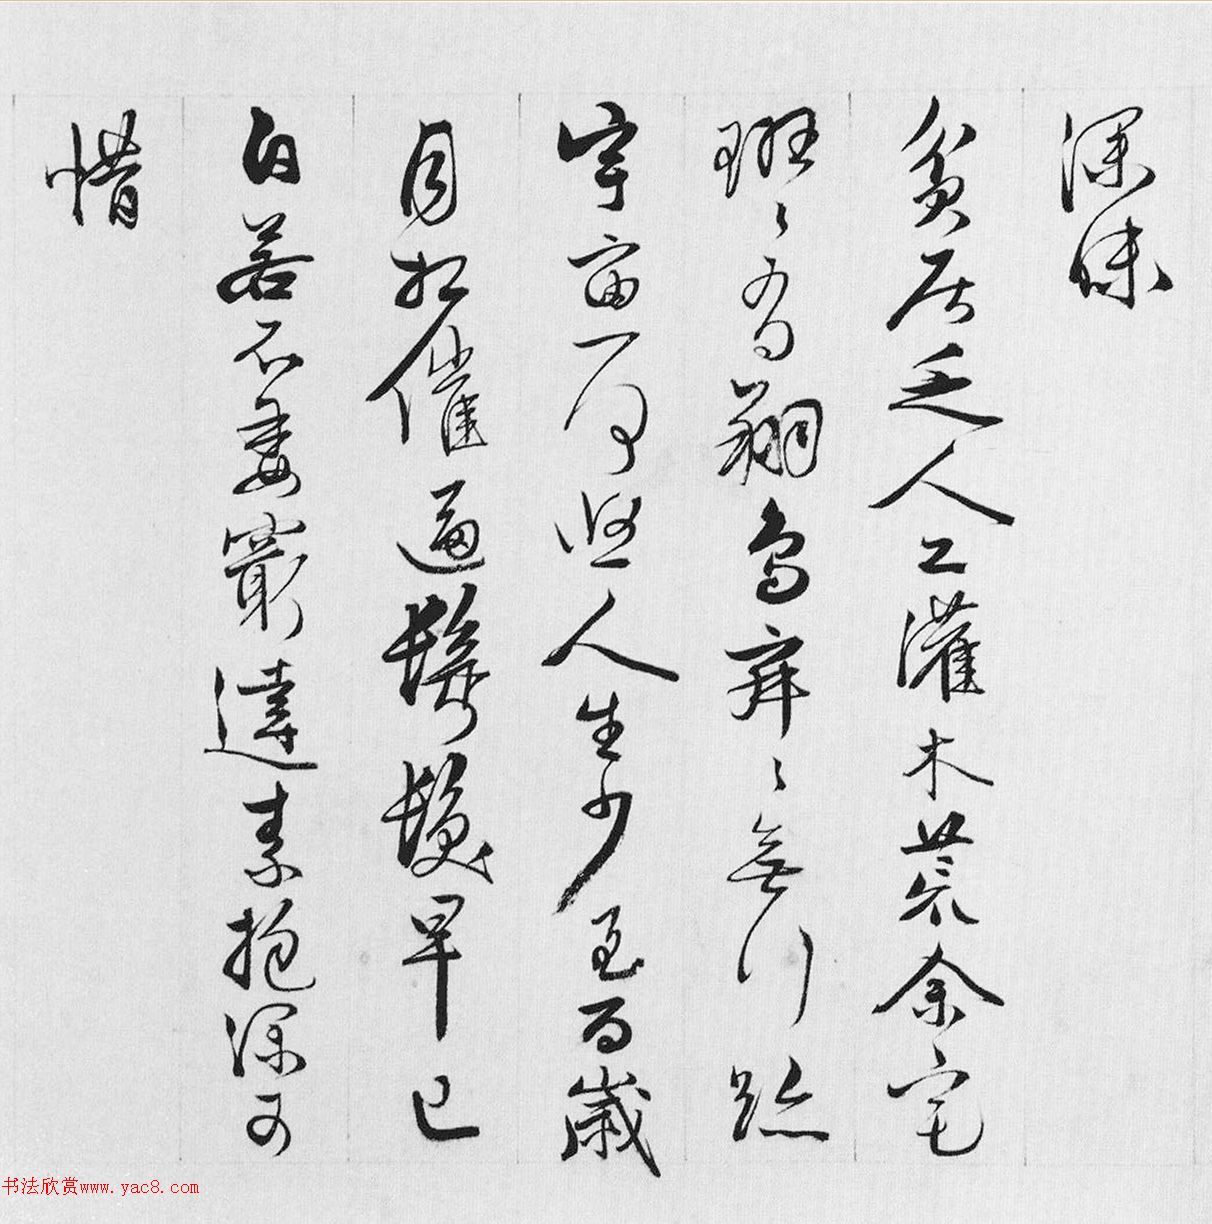 深味
貧居乏人工灌木荒余宅
班々有翔鳥寂々無行跡
宇宙一何悠人生少至百歲
月相催逼鬢髮早已
白若不委窮達素抱深可
惜
书法欣赏www.yac8.com